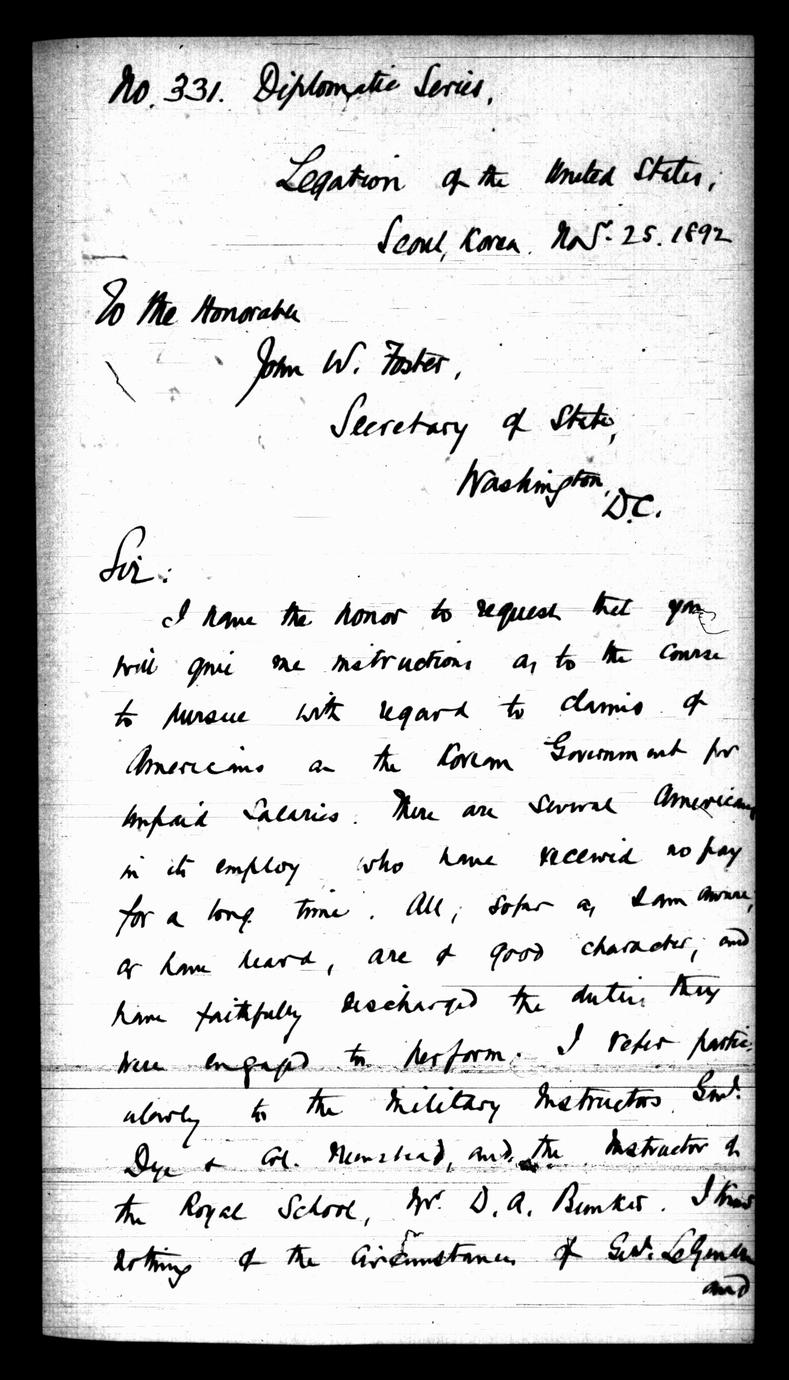 No. 331. Diplomatic Series,
Legation of the United States,
Seoul, Korea. Nov. 25. 1892
To the Honorable
John W. Foster,
Secretary of State,
Washington,
D.C.
Sir:
I have the honor to request that you
will give me instructions as to the course
to pursue with regard to claims of
Americans on the Korean Government for
unpaid Salaries. There are several Americans
in its employ who have received no pay
for a long time. All, so far as I am aware,
or have heard, are of good character, and
have faithfully discharged the duties they
were engaged to perform. I refer partic-
ularly to the Military Instructors Genl.
Dye & Col. Nienstead, and the Instructor of
the Royal School, Mr. D. A. Bunker. I know
nothing of the circumstances of Genl. LeGendre
and